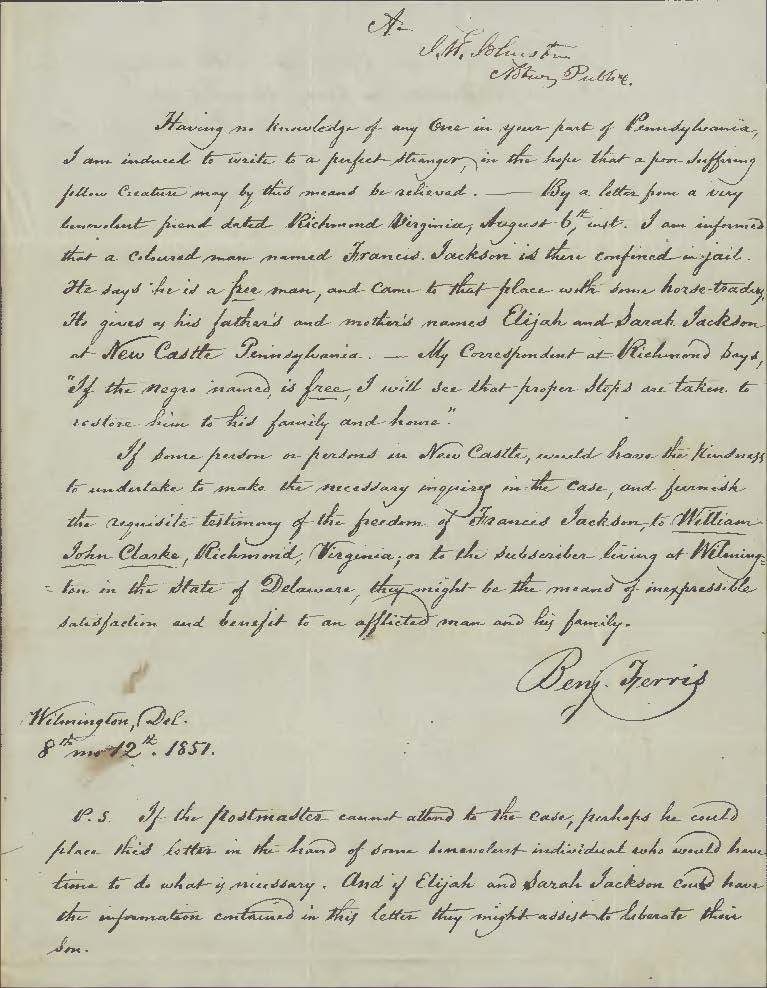 A.
J. W. Johnston
Notary Public.
Having no knowledge of any One in your part of Pennsylvania,
I am induced to write to a perfect stranger, in the hope that a poor suffering
fellow Creature may by this means be relieved. — By a letter from a very
benevolent friend dated Richmond Virginia, August 6th, inst. I am informed
that a coloured man named Francis Jackson is there confined in jail.
He says he is a free man, and came to that place with some horse-traders.
He gives as his father's and mother's names Elijah and Sarah Jackson
at New Castle Pennsylvania. — My Correspondent at Richmond says,
"If the negro named, is free, I will see that proper Steps are taken to
restore him to his family and home".
If some person or persons in New Castle, would have the kindness
to undertake to make the necessary inquiry in the case, and furnish
the requisite testimony of the freedom of Francis Jackson, to William
John Clarke, Richmond, Virginia; or to the subscriber living at Wilming-
=ton in the State of Delaware, they might be the means of inexpressible
satisfaction and benefit to an afflicted man and his family.
Benj. Ferris
Wilmington, Del.
8th mo 12th. 1851.
P.S. If the postmaster cannot attend to the case, perhaps he could
place this letter in the hand of some benevolent individual who would have
time to do what is necessary. And if Elijah and Sarah Jackson could have
the information contained in this letter they might assist to liberate their
Son.